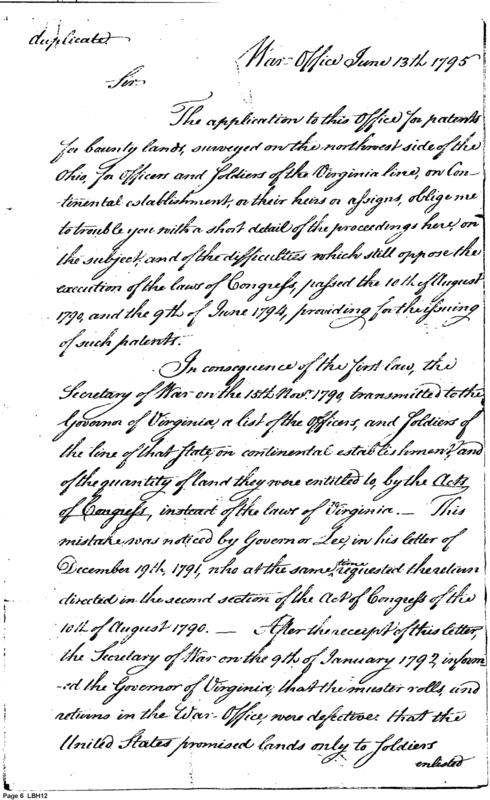 duplicate
War-Office June 13th 1795
Sir
The application to this Office for patents
for bounty lands, surveyed on the northwest side of the
Ohio, for Officers and Soldiers of the Virginia line, on Con-
-tinental establishment, or their heirs or assigns, oblige me
to trouble you with a short detail of the proceedings here, on
the subject, and of the difficulties which still oppose the
execution of the laws of Congress, passed the 10th of August
1790, and the 9th of June 1794, providing for the issuing
of such patents.
In consequence of the first law, the
Secretary of War on the 15th Novr. 1790, transmitted to the
Governor of Virginia, a list of the Officers, and Soldiers of
the line of that State, on continental establishment, and
of the quantity of land they were entitled to, by the Acts
of Congress, instead of the laws of Virginia. — This
mistake was noticed by Governor Lee, in his letter of
December 19th, 1791, who at the same time requested the return
directed in the second section of the Act of Congress of the
10th of August 1790. — After the receipt of this letter,
the Secretary of War on the 9th of January 1792, inform
-ed the Governor of Virginia, that the muster rolls, and
returns in the War-Office, were defective: that the
United States promised lands only to Soldiers
enlisted
Page 6 LBH12